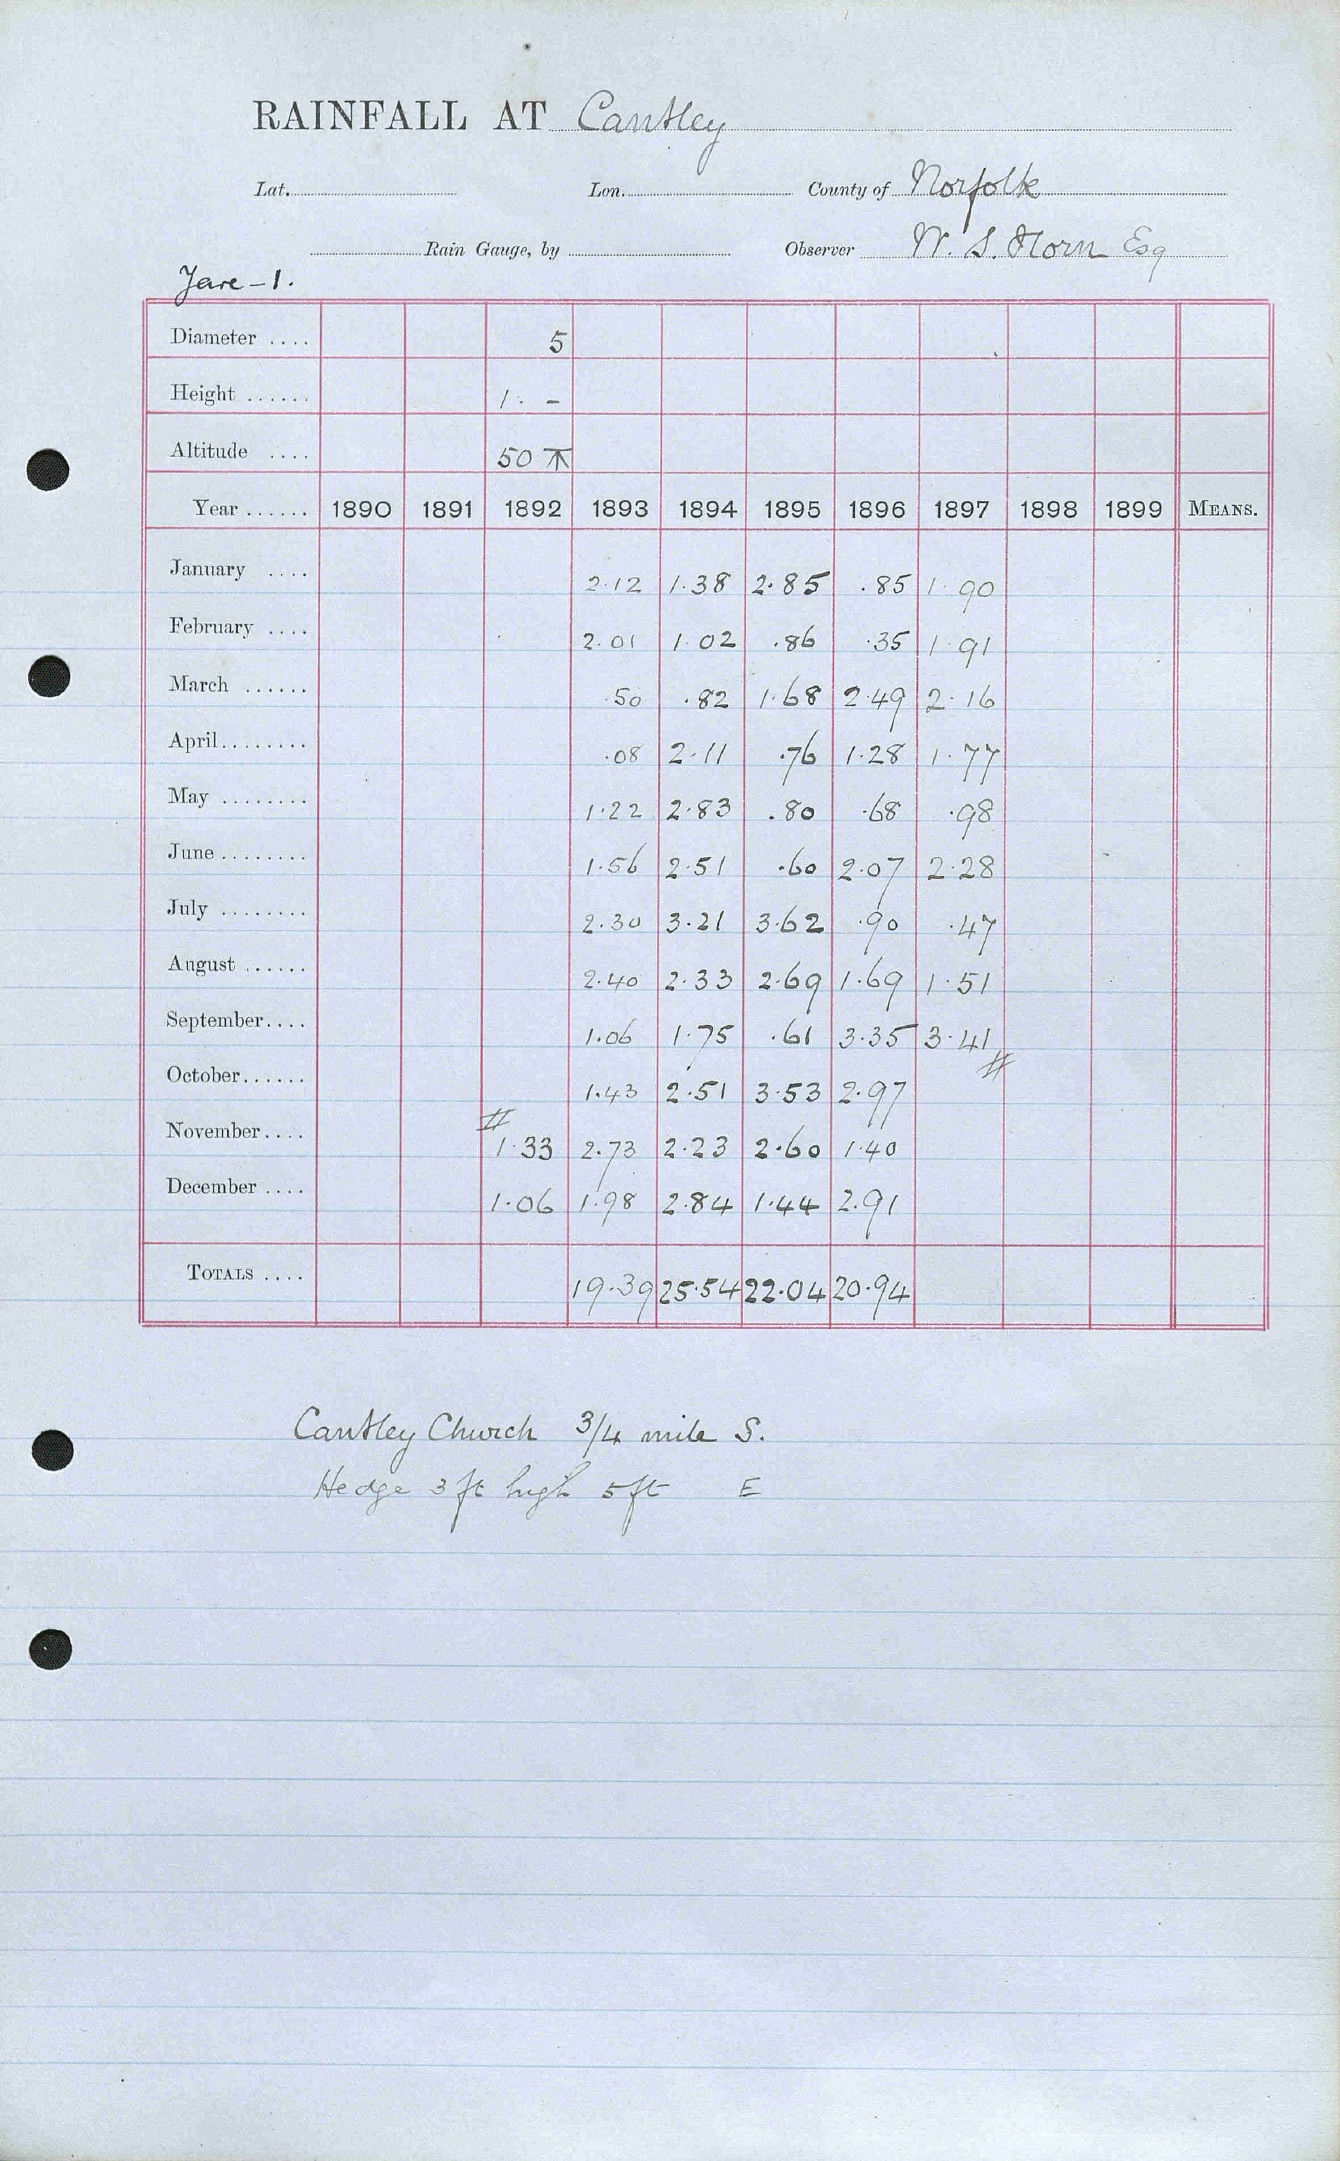 RAINFALL AT Cantley
Lat. Lon. County of Norfolk
Rain Gauge, by Observer W. S. Horn Esq
Yare - 1.
Diameter .... 5
Height ...... 1 . -
Altitude .... 50
Year ...... 1890 1891 1892 1893 1894 1895 1896 1897 1898 1899 MEANS.
January .... 2.12 1.38 2.85 .85 1.90
February .... 2.01 1.02 .86 .35 1.91
March ...... .50 .82 1.68 2.49 2.16
April........ .08 2.11 .76 1.28 1.77
May ........ 1.22 2.83 .80 .68 .98
June ........ 1.56 2.51 .60 2.07 2.28
July ........ 2.30 3.21 3.62 .90 .47
August ...... 2.40 2.33 2.69 1.69 1.51
September.... 1.06 1.75 .61 3.35 3.41
October...... 1.43 2.51 3.53 2.97
November.... 1.33 2.73 2.23 2.60 1.40
December .... 1.06 1.98 2.84 1.44 2.91
TOTALS .... 19.39 25.54 22.04 20.94
Cantley Church 3/4 mile S.
Hedge 3 ft high 5 ft E